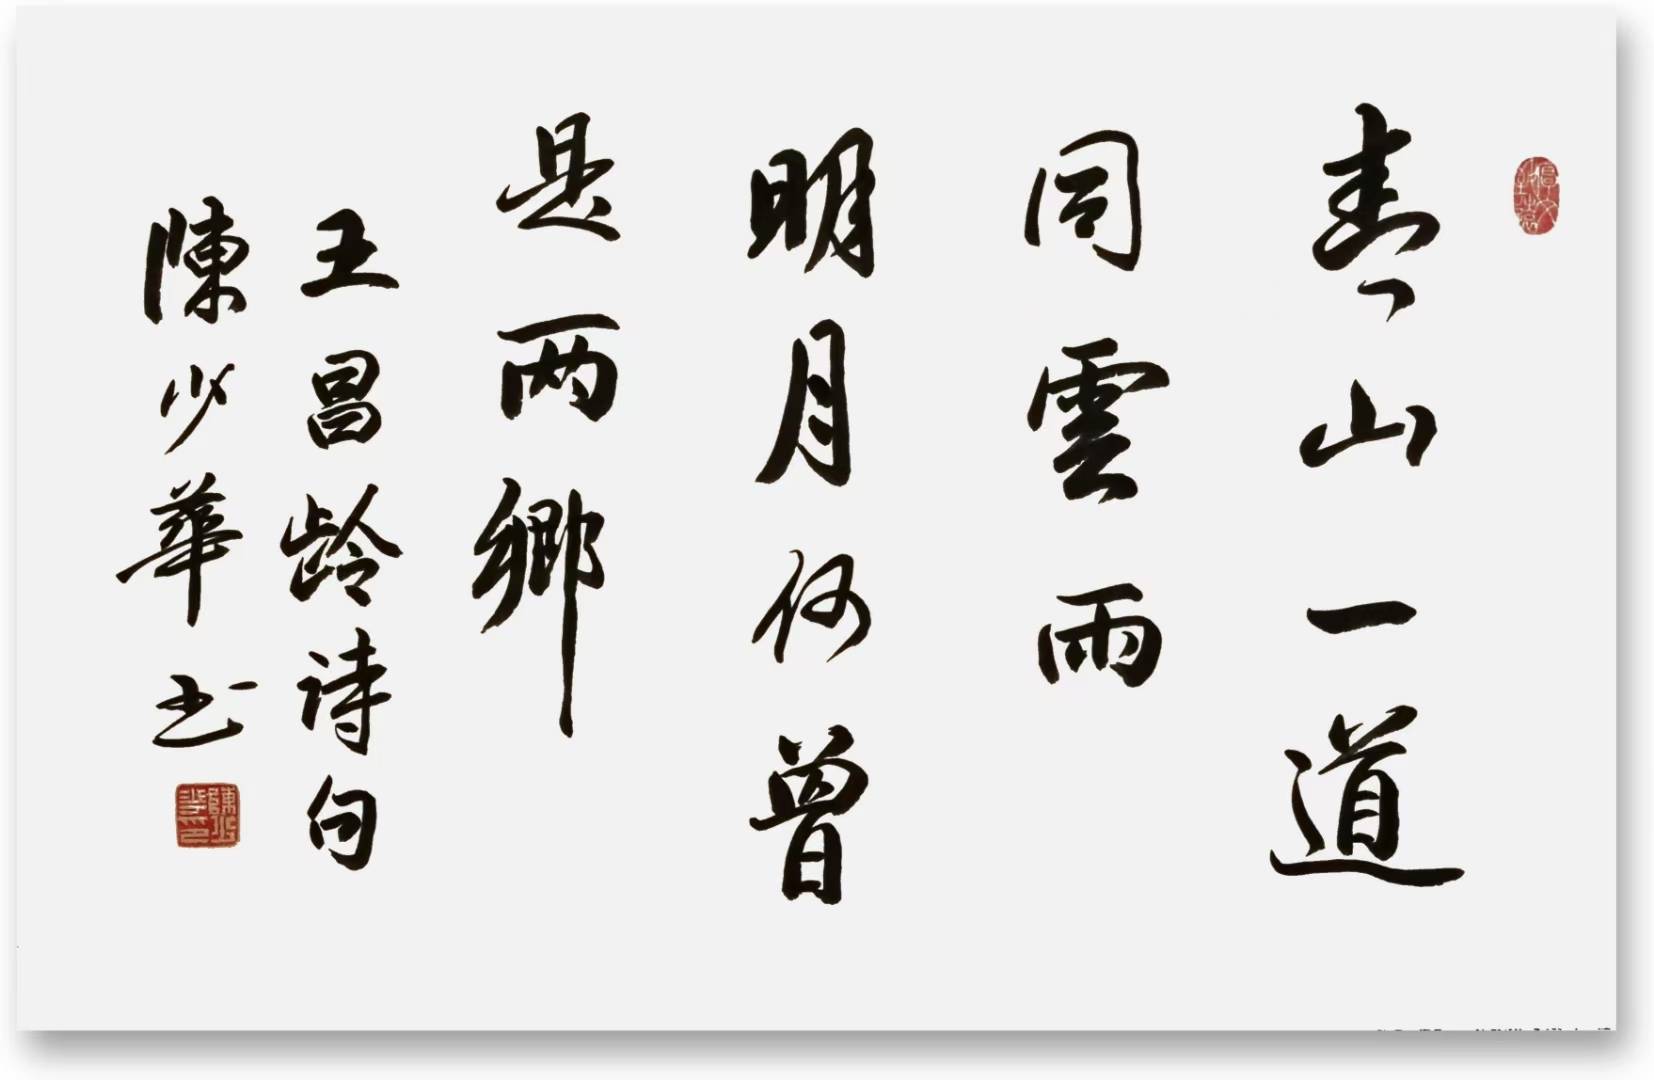 青山一道
同雲雨
明月何曾
是两鄉
王昌龄诗句
陳少華书
陳少華印